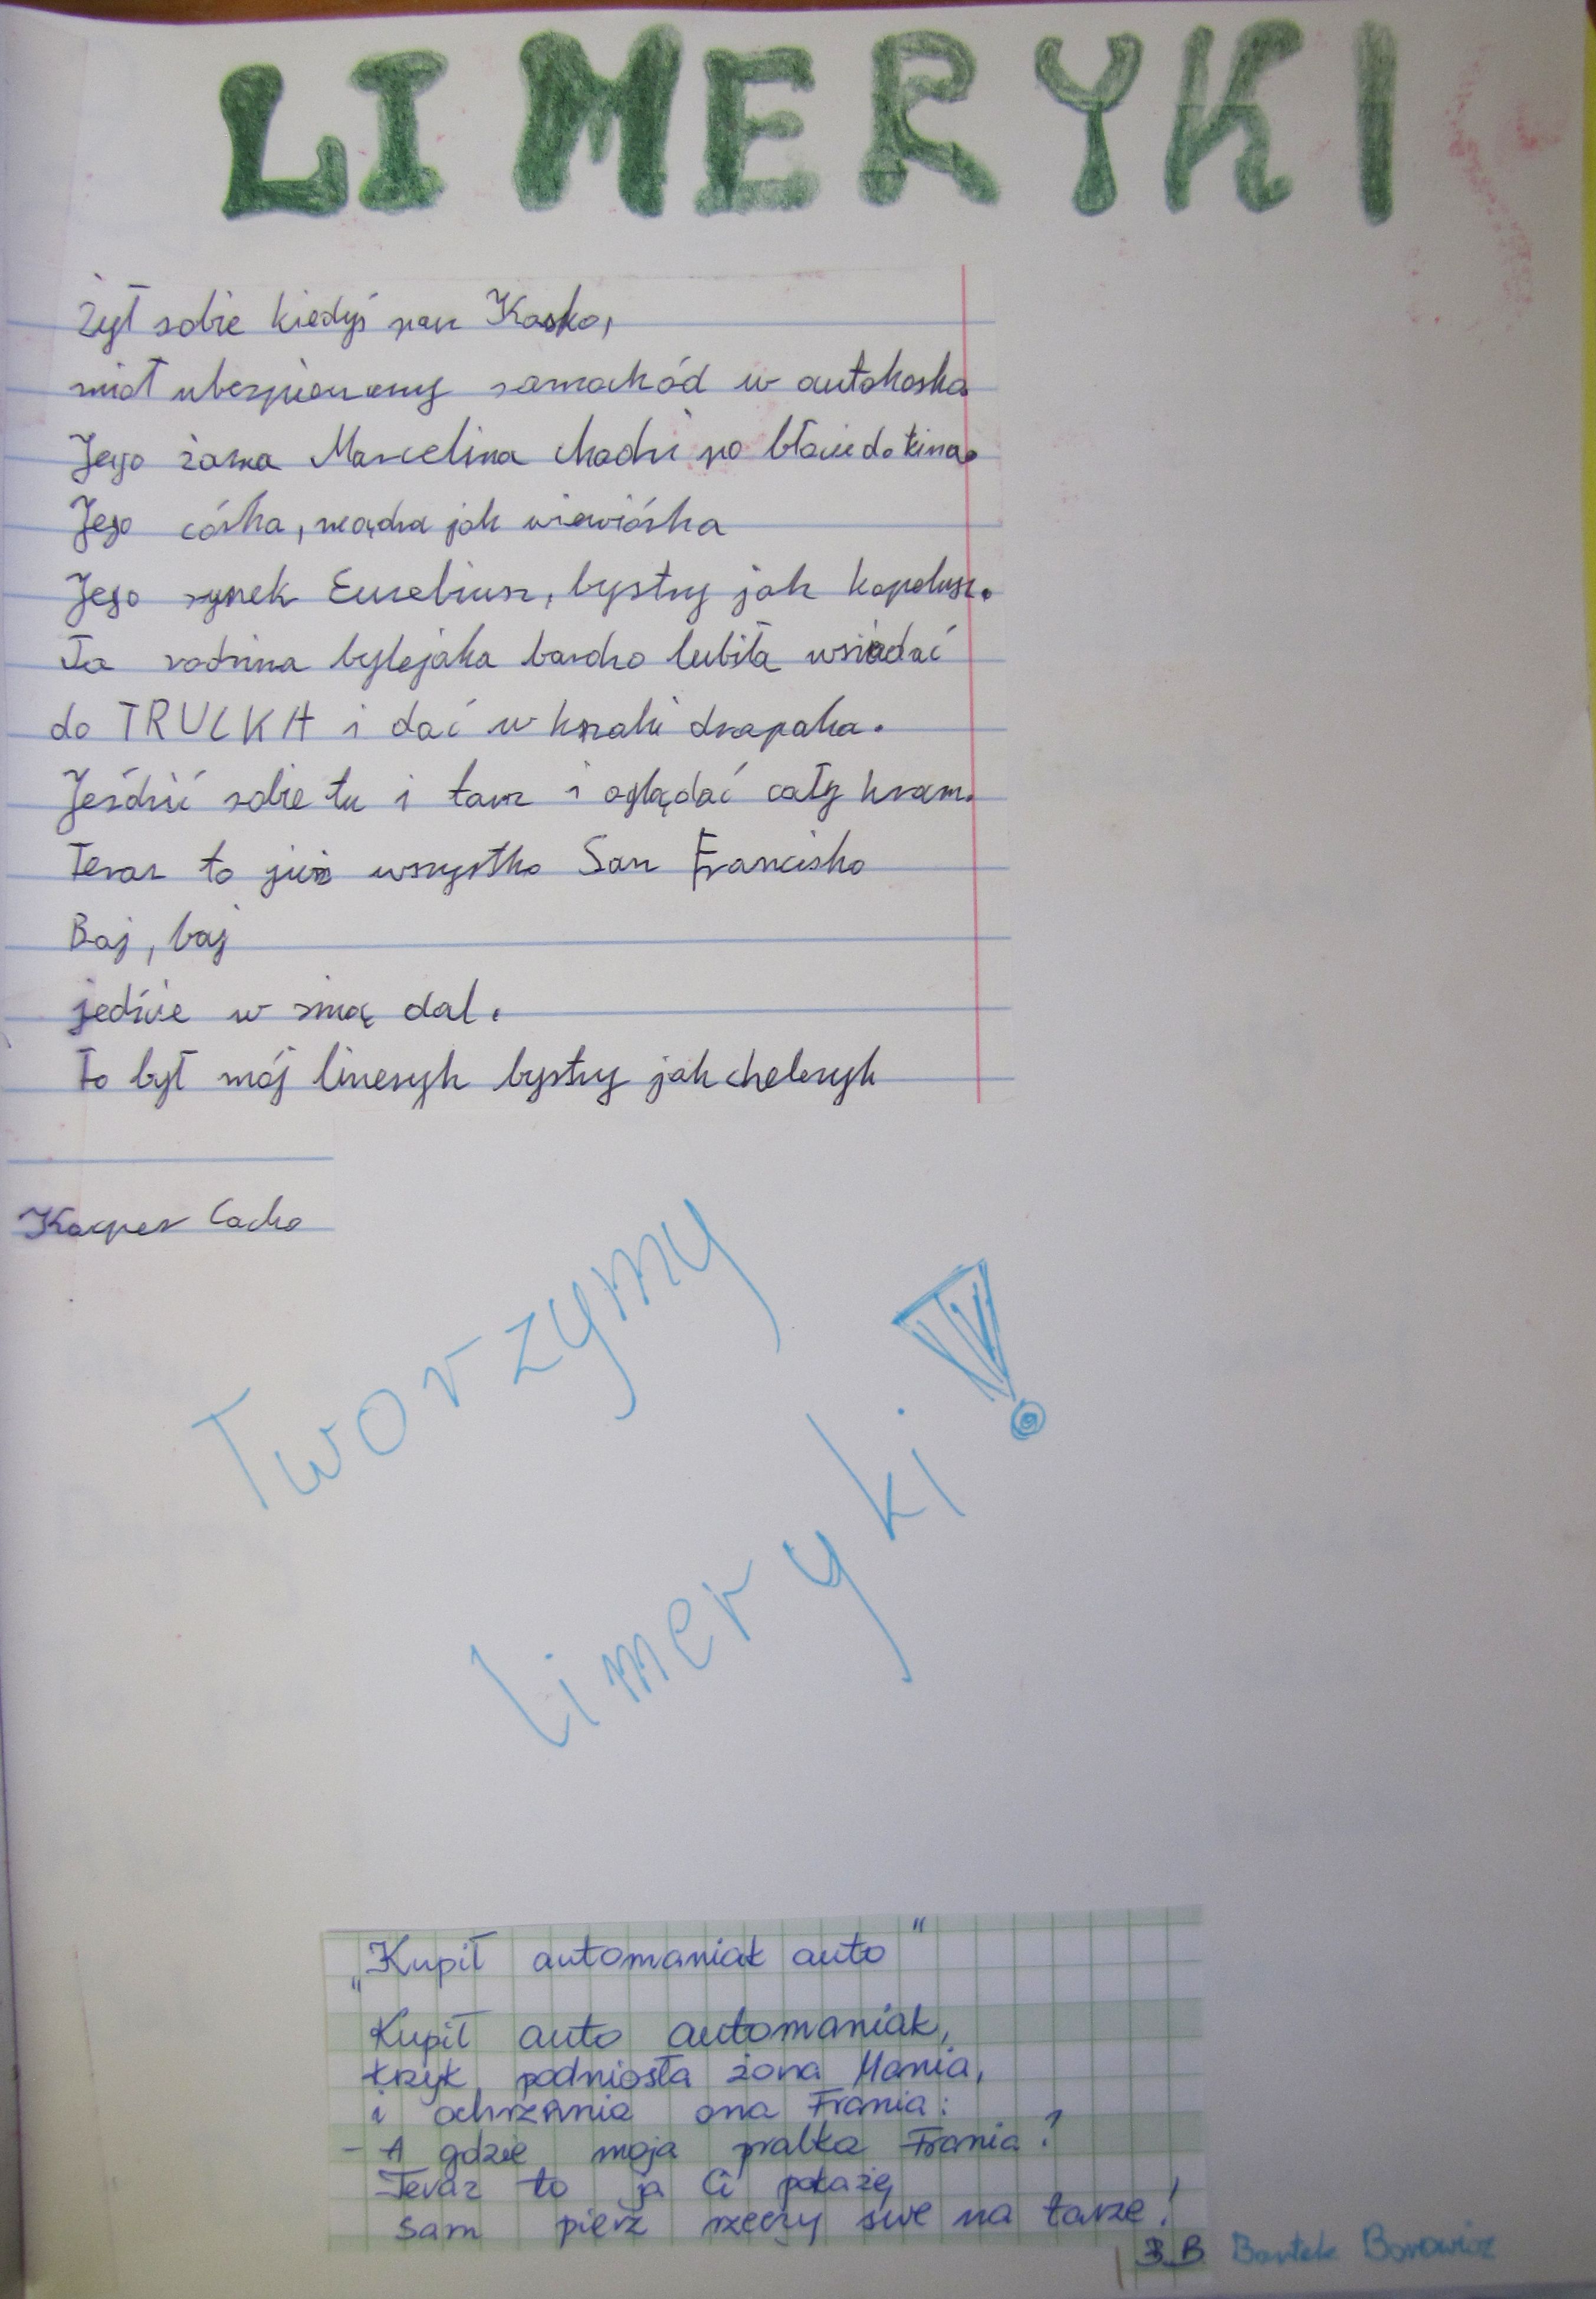 LIMERYKI
Żył sobie kiedyś pan Kasko,
miał ubezpieczony samochód w autokasko.
Jego żona Marcelina chodzi po błocie do kina.
Jego córka, mądra jak wiewiórka
Jego synek Euzebiusz, bystry jak kapelusz.
Ta rodzina bylejaka bardzo lubiła wsiadać
do TRUCKA i dać w krzaki drapaka.
Jeździć sobie tu i tam i oglądać cały kram.
Teraz to już wszystko San Francisko
Baj, baj
jedźcie w siną dal.
To był mój limeryk bystry jak choleryk
Kacper
Tworzymy
limeryki!
„Kupił automaniak auto"
Kupił auto automaniak,
krzyk podniosła żona Mania,
i ochrzania ona Frania:
- A gdzie moja pralka Frania?
Teraz to ja Ci pokażę
sam pierz rzeczy swe na tarze!
B.B Bartek Borowicz